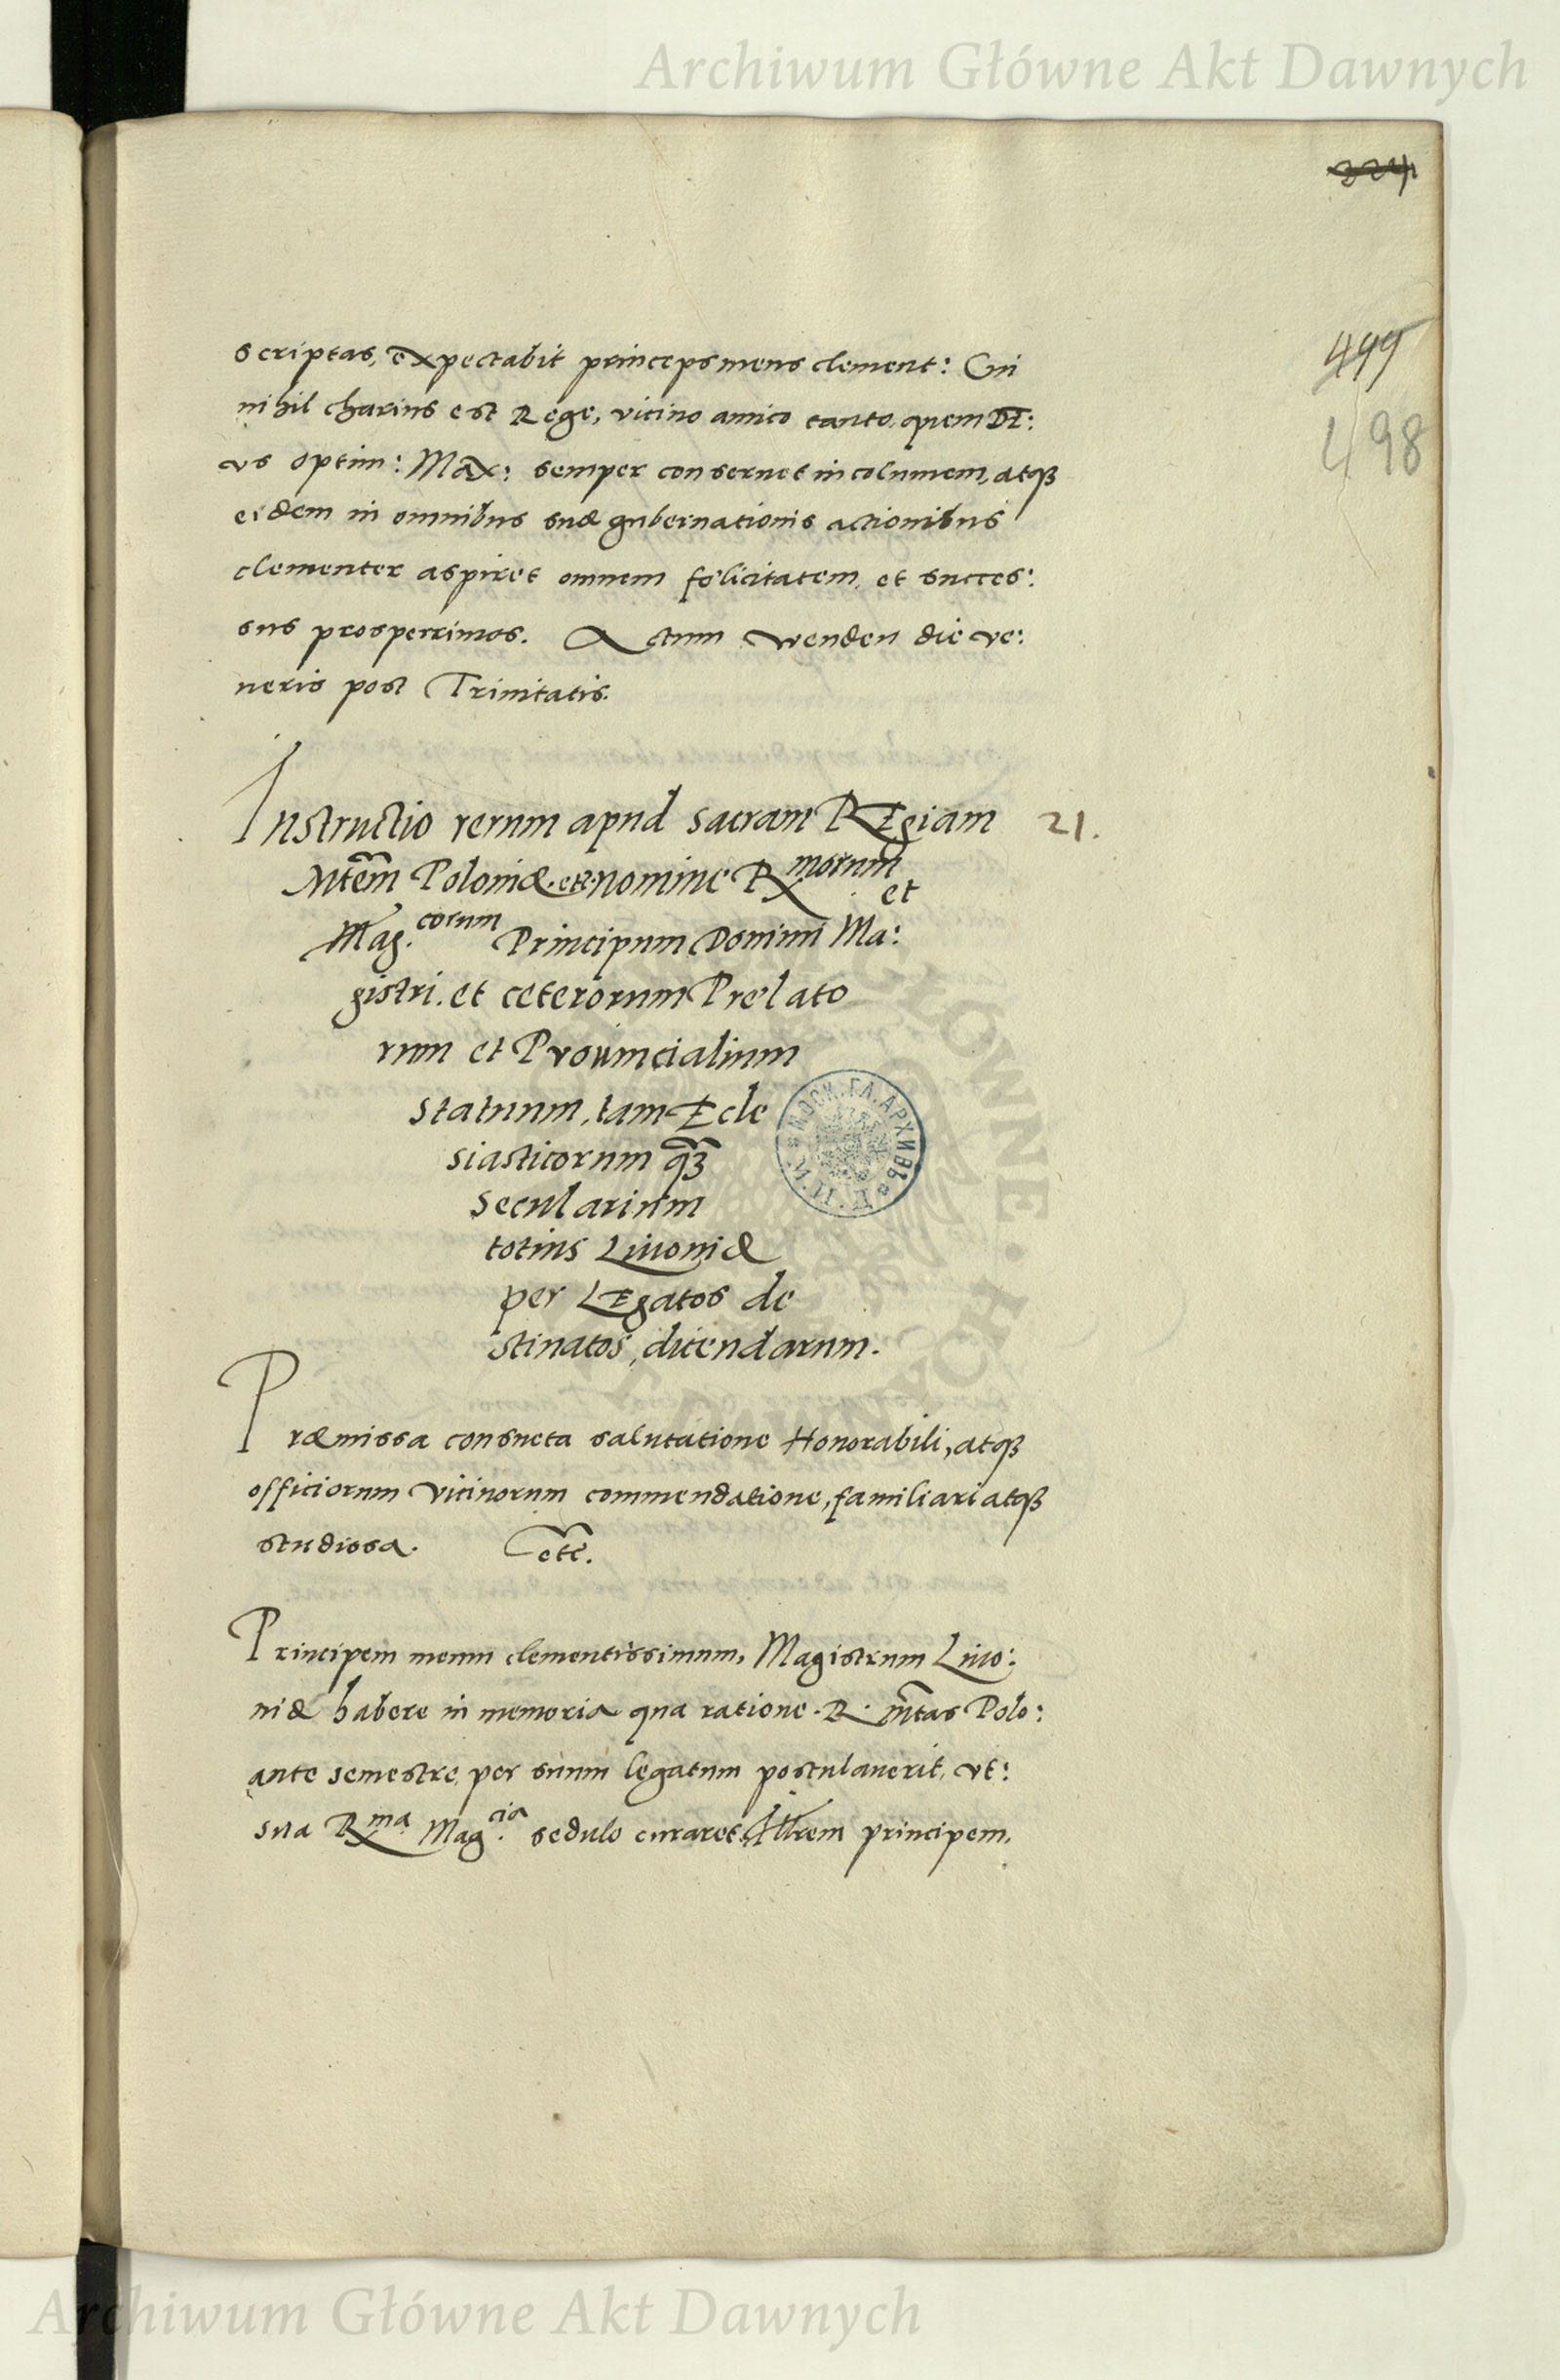 Archiwum Główne Akt Dawnych
324
499
498
scriptas, expectabit princeps meus clement: Cui
nihil charius est Rege, vicino amico tanto, quem DE:
vs optim: Max: semper conseruet incolumem, atq3
eidem in omnibus suæ gubernationis actionibus
clementer aspiret omnem fęlicitatem, et succes:
sus prosperrimos. Actum Wenden die Ve:
neris post Trinitatis.
Instructio rerum apud sacram REgiam 21.
Mtem Poloniæ. etc. nomine Rmorum et
Mag.corum Principum Domini Ma:
gistri. et ceterorum Prelato
rum et Prouincialium
statuum, tam Ecle
siasticorum q3
secularium
totius Liuoniæ
per LEgatos de
stinatos, dicendarum.
Præmissa consueta salutatione Honorabili, atq3
officiorum vicinorum commendatione, familiari atq3
studiosa. etc.
Principem meum clementissimum, Magistrum Liuo:
niæ habere in memoria qua ratione. R. Mtas Polo:
ante semestre, per suum legatum postulauerit, vt:
sua Rma Mag.cia sedulo curaret, Illrem principem,
МОСК. ГЛ. АРХИВЪ М. И. Д.
GŁÓWNE · AKT DAWNYCH ·
Archiwum Główne Akt Dawnych